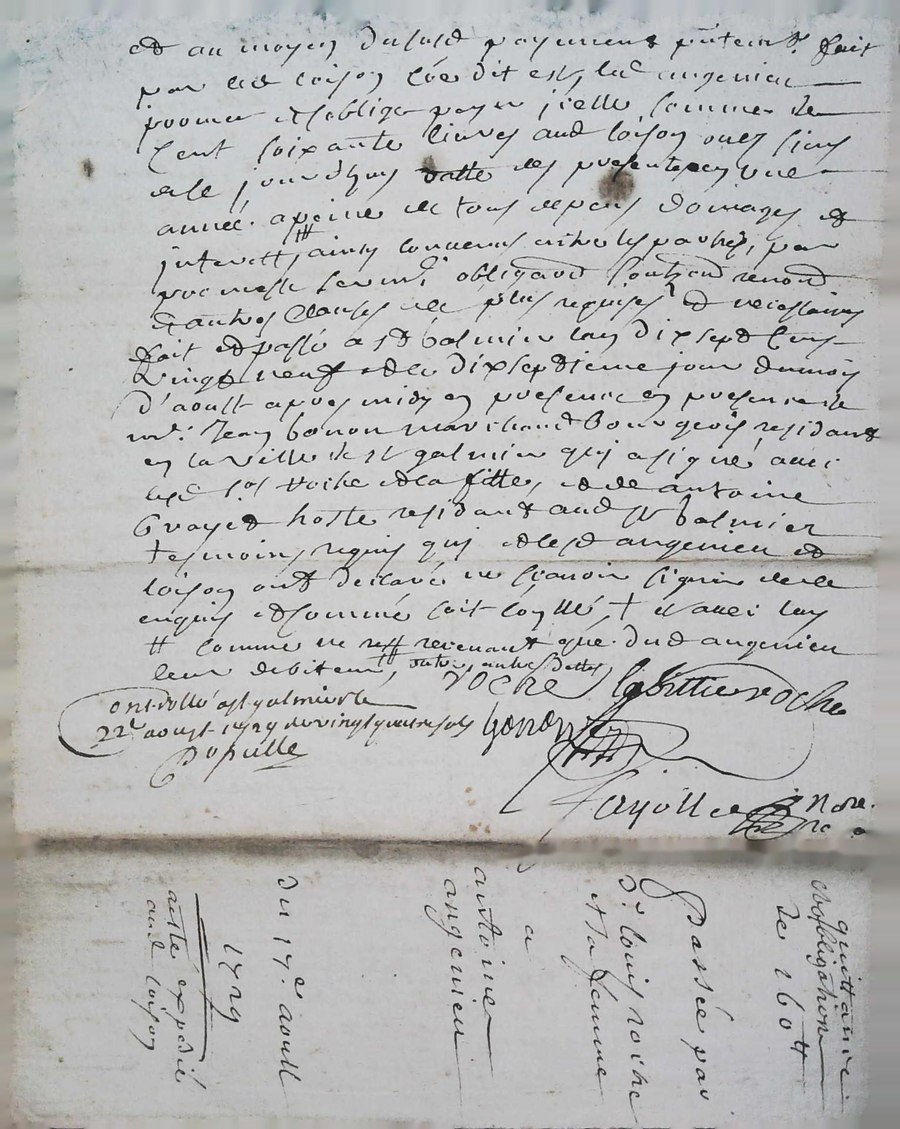 et au moyen dususd payement pntemt. fait
par led loison co~e dit est, led angenieu
promet et soblige payer jcelle somme de
Cent soixante livres aud loison ou es siens
de ce jourdhuy datte des presentes en une
année. apeine de tous depens domages et
jnterestz # ainsy convenu entre les parties, par
promesse sermt. obligaond soubzmd renond
et autres Clauses de plus requises et necessaires
fait et passé a st Galmier lan dix sept Cens
vingt neuf et le dixseptieme jour dumois
d'aoust apres midy en presence en presence de
mr. Jean bonon marchand bourgeois residant
en la ville de st galmier quy a signé avec
lesd srs roche et la fille, et de antoine
Grayet hoste residant aud st Galmier
tesmoins requis quy et lesd angenieu et
loison ont declaré ne sçavoir signer de ce
enquis et sommé soit coñllé, † et avec lun
# comme ne restt revenant que dud angenieu
leur debiteur, outre, autres dettes,
roche labattie roche
Controllé a st galmier le
22e aoust 1729 recu vingt quatre sols bonon
populle
fayolle nore.
quittance
et obligation
de 160 #
Passée par
Sr. louis roche
et sa femme
a
antoine
angenieu
du 17e aoust
1729
acte expedié
aud loison